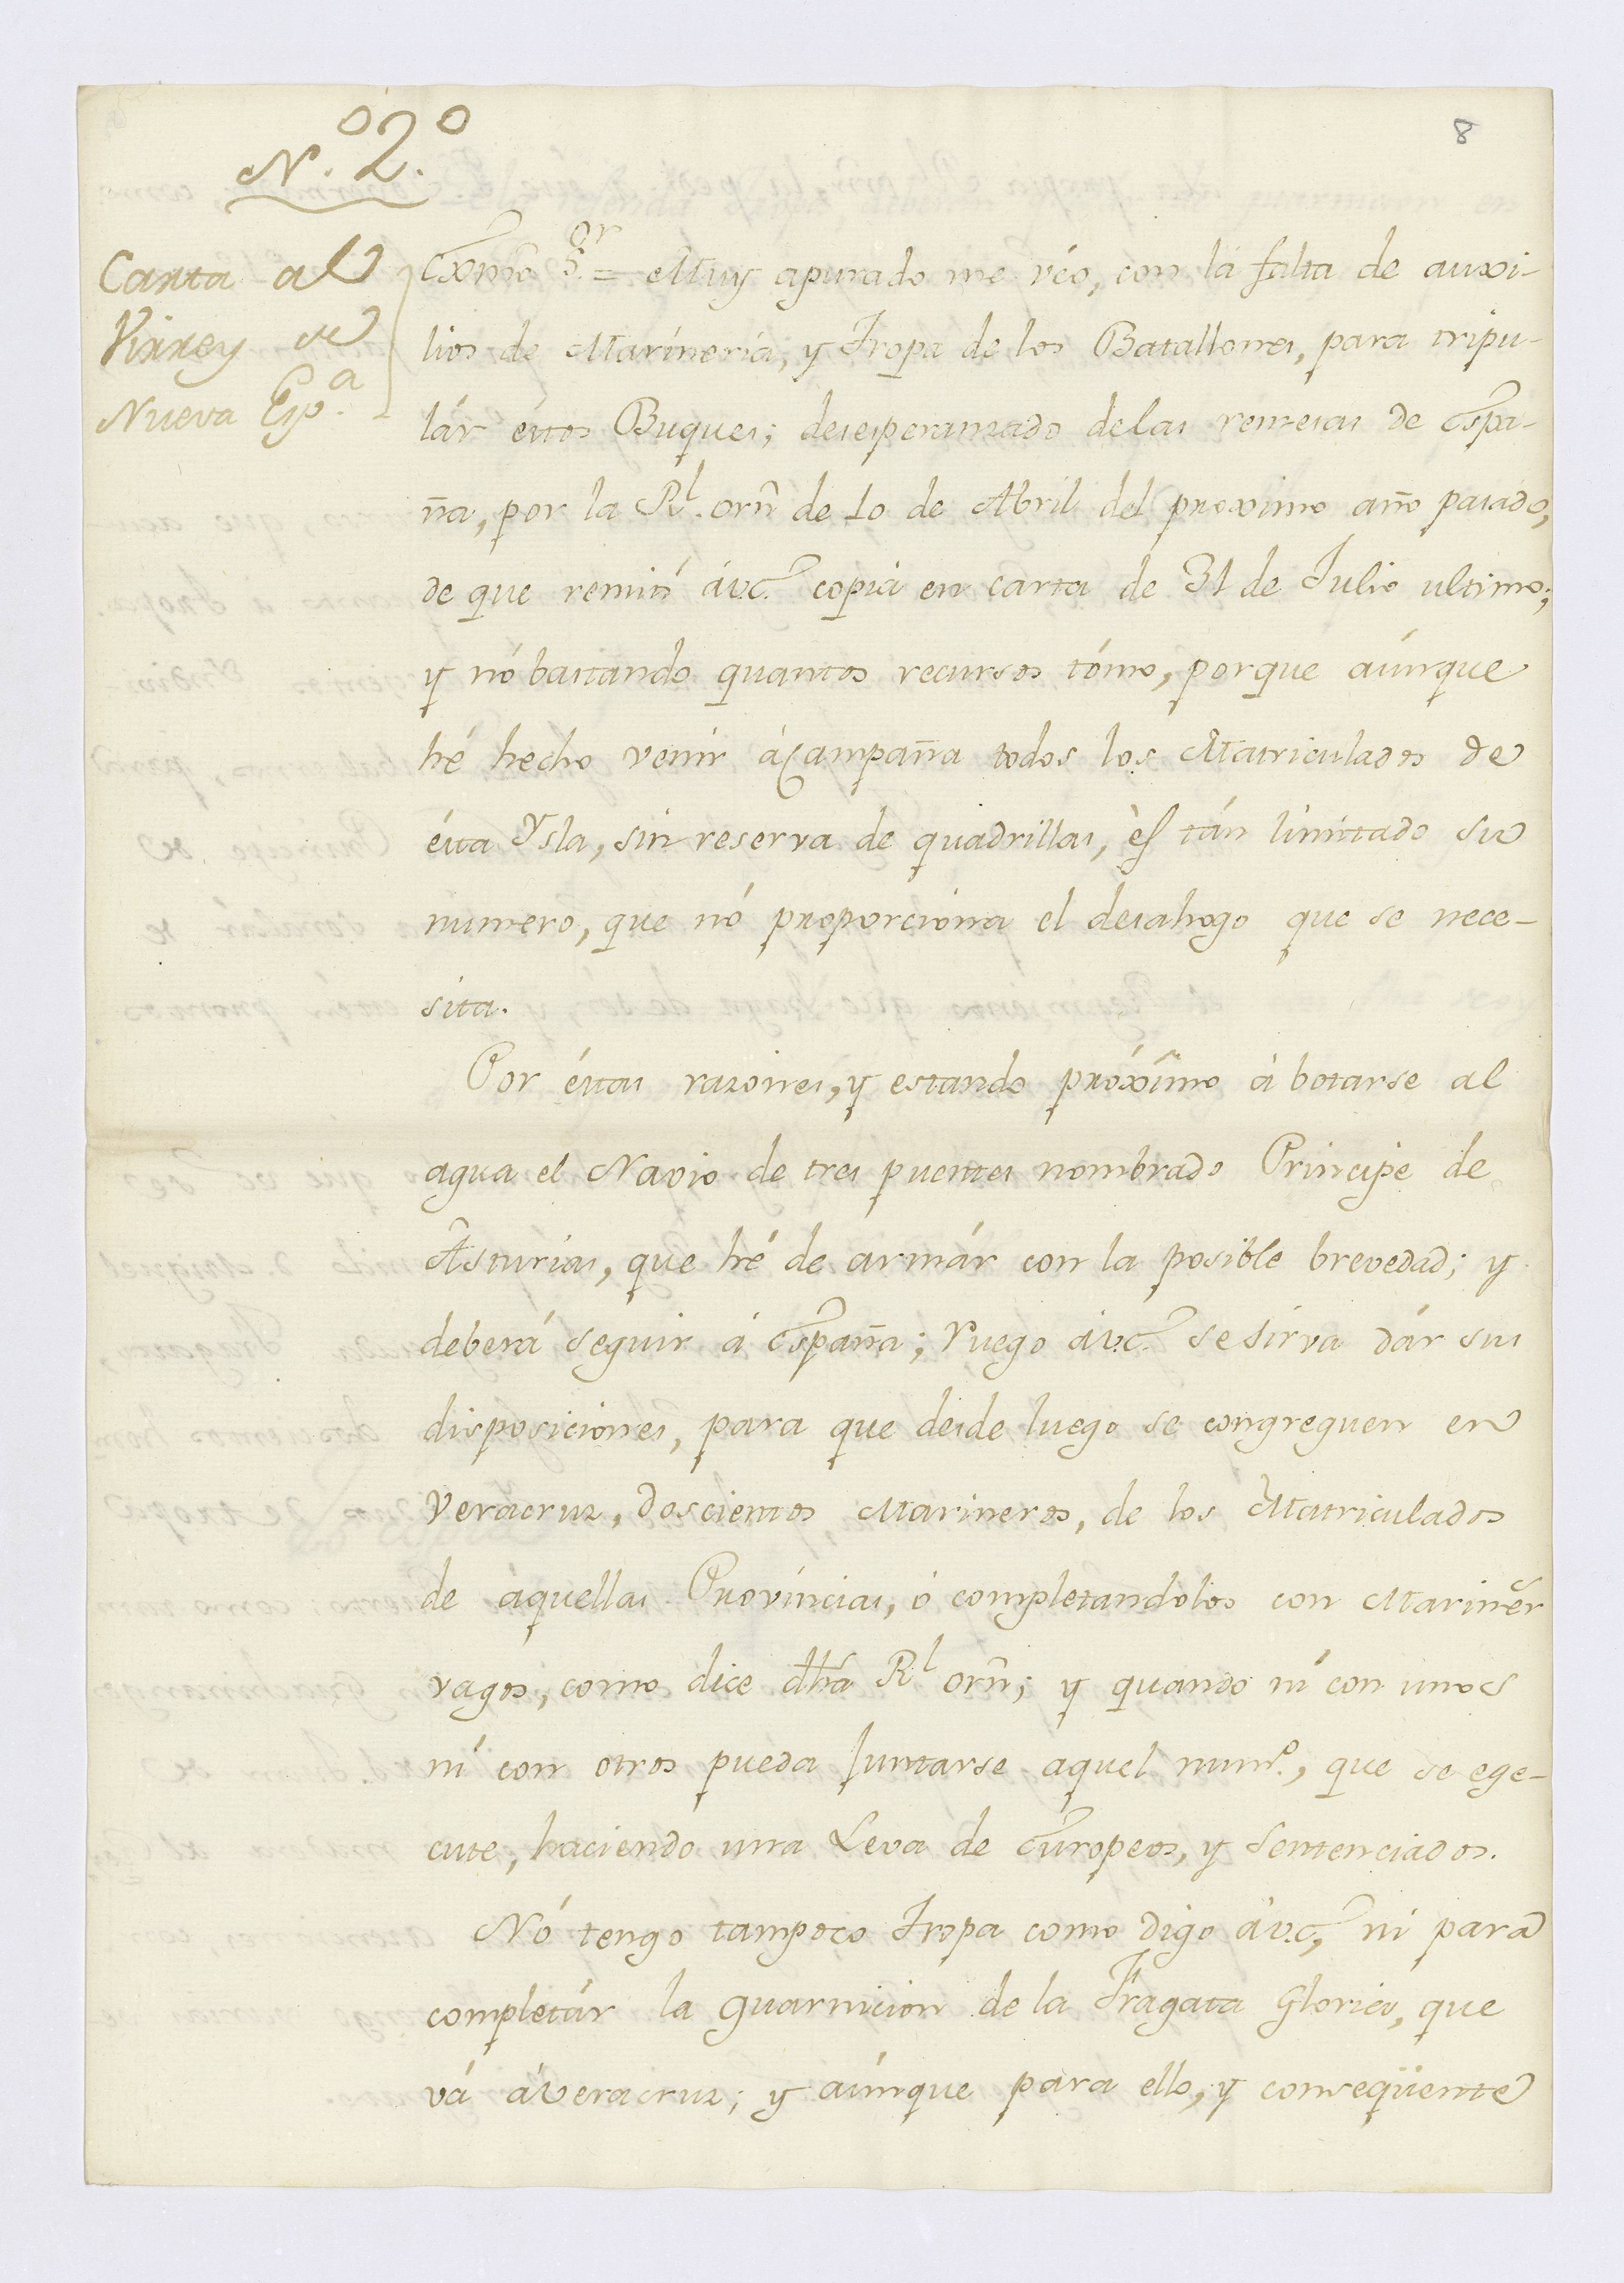 N.º 2.º
8
Carta al
Virrey de
Nueva Esp.ª
Exmo S.ºr = Muy apurado me véo, con la falta de auxi-
lios de Marineria, y Tropa de los Batallones, para tripu-
lár éstos Buques; desesperanzado delas remesas de Espa-
ña, por la Rl. orñ de 10 de Abril del proximo año pasado,
de que remití áv.e. copia en carta de 31 de Julio ultimo;
y nó bastando quantos recursos tómo, porque aúnque
hé hecho venir áCampaña todos los Matriculados de
ésta Ysla, sin reserva de quadrillas, és tán limitado su
numero, que nó proporciona el desahogo que se nece-
sita.
Por éstas razones, y estando próximo á botarse al
agua el Navio de tres puentes nombrado Principe de
Asturias, que hé de armár con la posible brevedad; y
deberá seguir á España; ruego áv.e. sesirva dár sus
disposiciones, para que desde luego se congreguen en
Veracruz, doscientos Marineros, de los Matriculados
de áquellas Províncias, ó completandolos con Mariner̃
vagos, como dice dhã Rl orñ; y quando ni con unos
ni con otros pueda Juntarse aquel numº., que se ege-
cute, haciendo una Leva de Européos, y Sentenciados.
Nó tengo tampoco Tropa como digo áv.e., ni para
completár la guarnicion de la Fragata Gloria, que
vá áVeracruz; y aúnque para ello, y conseqüente